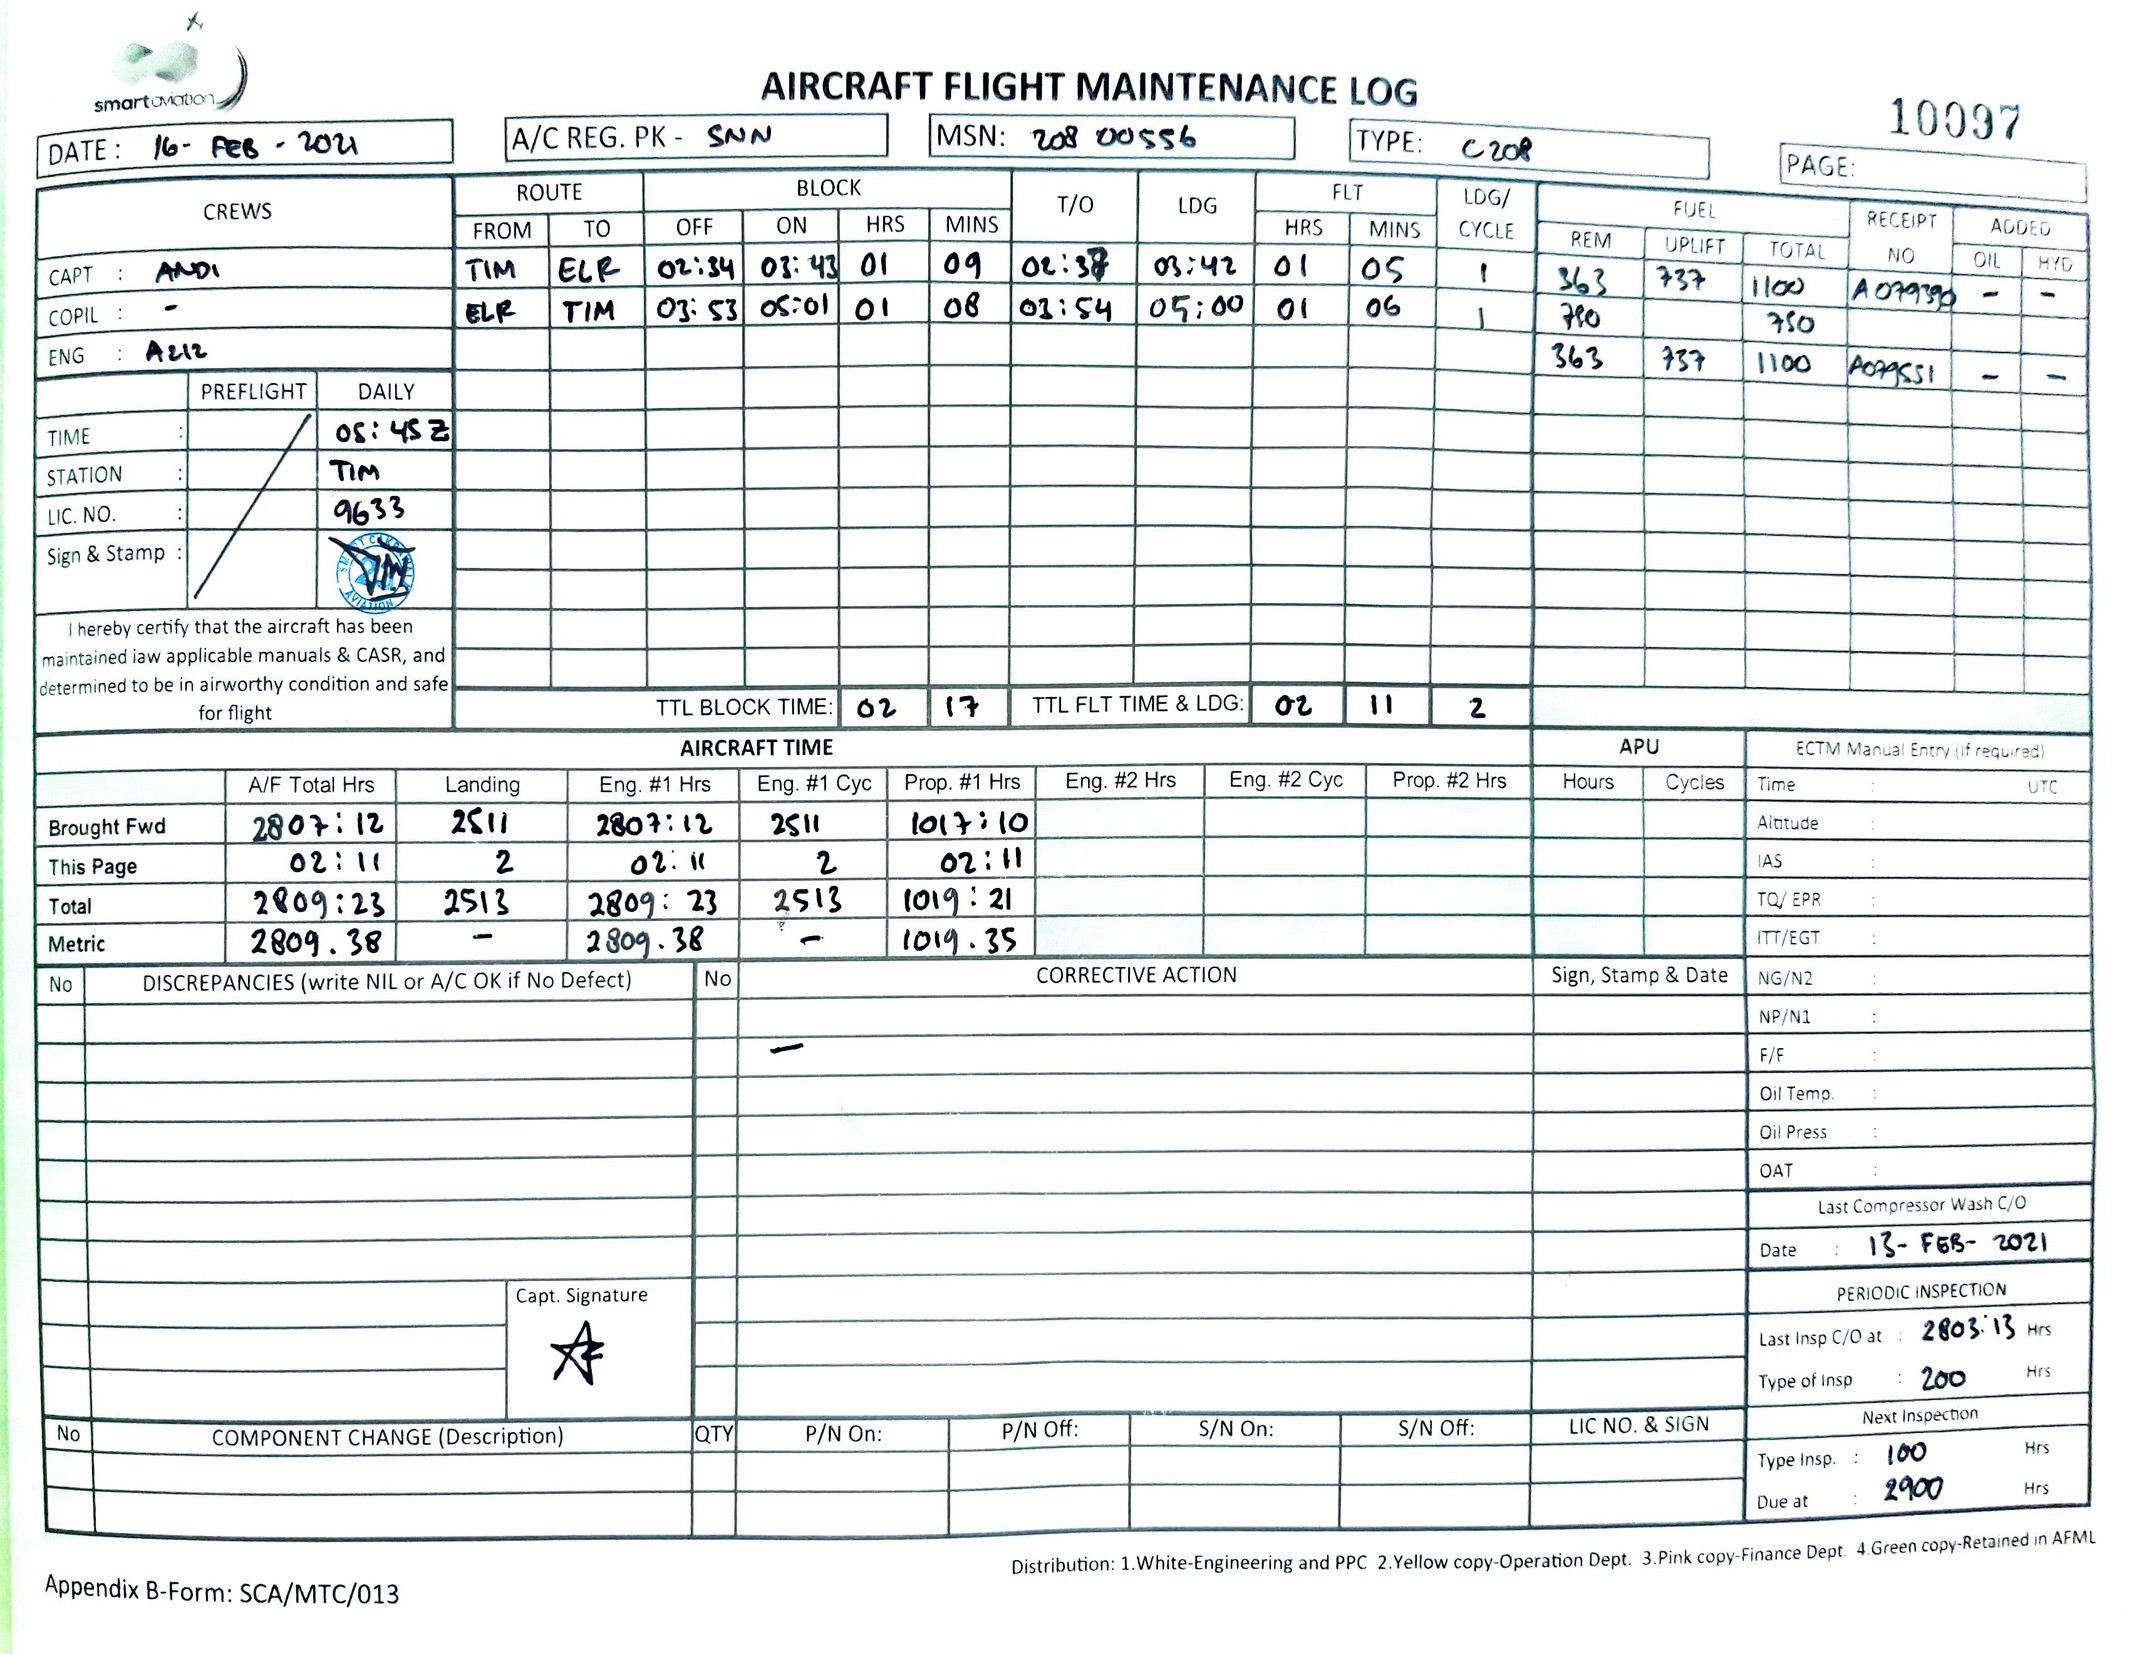 smart aviation
AIRCRAFT FLIGHT MAINTENANCE LOG
10097
DATE : 16- FEB - 2021
A/C REG. PK - SNN
MSN: 208 00556
TYPE: C208
PAGE:
CREWS
ROUTE BLOCK T/O LDG FLT LDG/ CYCLE FUEL RECEIPT NO ADDED
FROM TO OFF ON HRS MINS HRS MINS REM UPLIFT TOTAL OIL HYD
CAPT : ANDI
COPIL : -
ENG : A212
TIM ELR 02:34 03:43 01 09 02:37 03:42 01 05 1 363 737 1100 A079390 - -
ELR TIM 03:53 05:01 01 08 03:54 05:00 01 06 1 750 750
363 737 1100 A079551 - -
PREFLIGHT DAILY
TIME : 05:45 Z
STATION : TIM
LIC. NO. : 9633
Sign & Stamp :
AVIATION
I hereby certify that the aircraft has been
maintained iaw applicable manuals & CASR, and
determined to be in airworthy condition and safe
for flight
TTL BLOCK TIME: 02 17 TTL FLT TIME & LDG: 02 11 2
AIRCRAFT TIME
APU
A/F Total Hrs Landing Eng. #1 Hrs Eng. #1 Cyc Prop. #1 Hrs Eng. #2 Hrs Eng. #2 Cyc Prop. #2 Hrs Hours Cycles
Brought Fwd 2807:12 2511 2807:12 2511 1017:10
This Page 02:11 2 02:11 2 02:11
Total 2809:23 2513 2809:23 2513 1019:21
Metric 2809.38 - 2809.38 - 1019.35
ECTM Manual Entry (if required)
Time : UTC
Altitude :
IAS :
TQ/ EPR :
ITT/EGT :
NG/N2 :
NP/N1 :
F/F :
Oil Temp. :
Oil Press :
OAT :
No DISCREPANCIES (write NIL or A/C OK if No Defect) No CORRECTIVE ACTION Sign, Stamp & Date
-
Capt. Signature
Last Compressor Wash C/O
Date : 13- FEB- 2021
PERIODIC INSPECTION
Last Insp C/O at : 2803:13 Hrs
Type of Insp : 200 Hrs
Next Inspection
Type Insp. : 100 Hrs
Due at : 2900 Hrs
No COMPONENT CHANGE (Description) QTY P/N On: P/N Off: S/N On: S/N Off: LIC NO. & SIGN
Distribution: 1.White-Engineering and PPC 2.Yellow copy-Operation Dept. 3.Pink copy-Finance Dept. 4.Green copy-Retained in AFML
Appendix B-Form: SCA/MTC/013